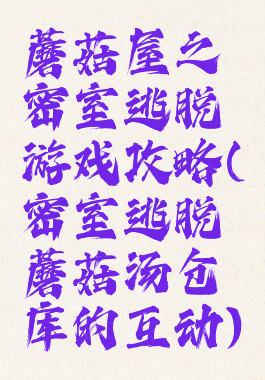 蘑菇屋之
密室逃脱
游戏攻略(
密室逃脱
蘑菇汤仓
库的互动)